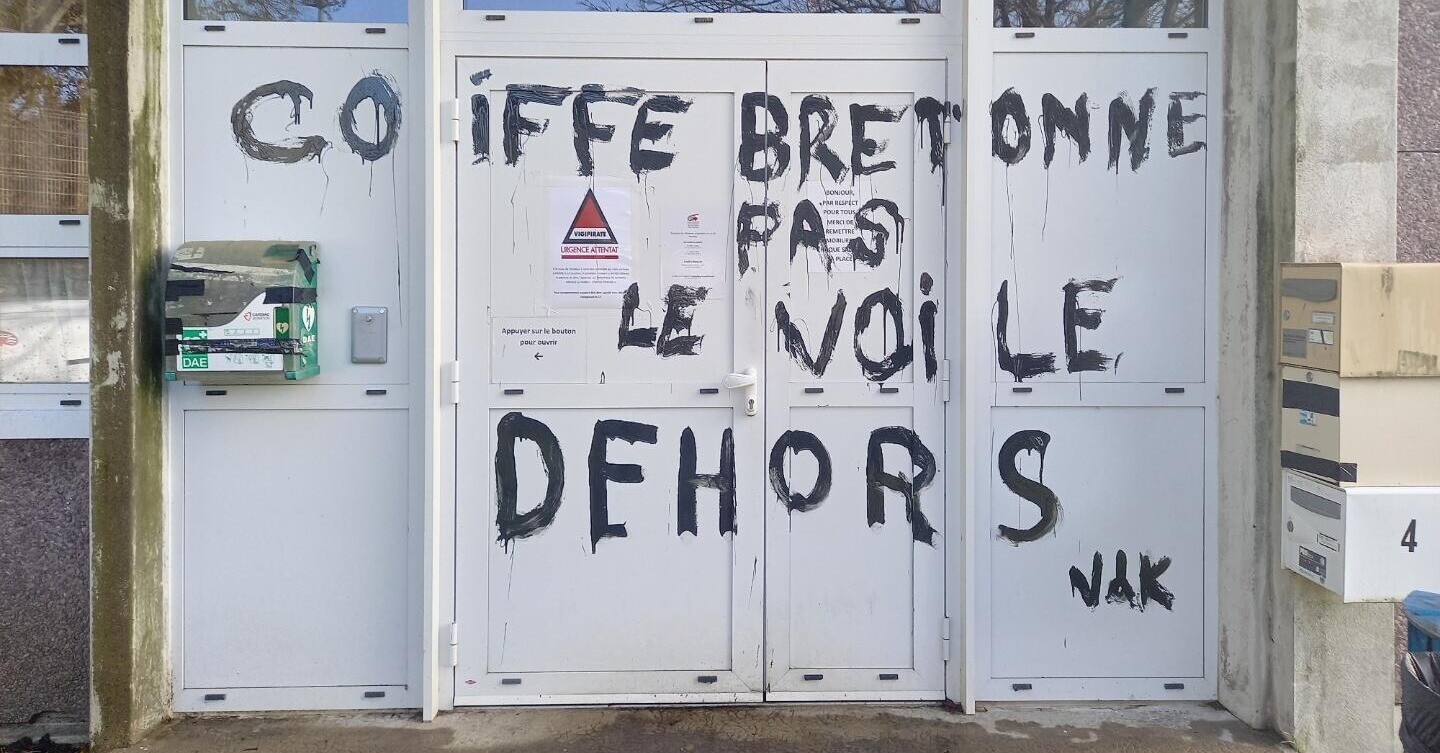 COIFFE BRETONNE
PAS
LE VOILE
DEHORS
NAK
VIGIPIRATE
URGENCE ATTENTAT
BONJOUR,
PAR RESPECT
POUR TOUS
MERCI DE
REMETTRE
Appuyer sur le bouton
pour ouvrir
←
DAE
DAE
4